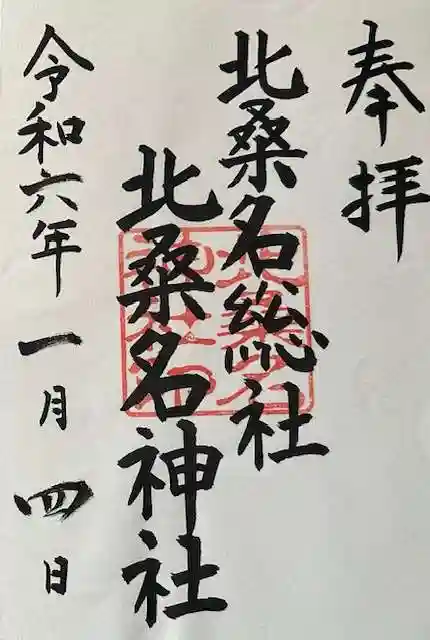 奉拝
北桑名総社
北桑名神社
令和六年一月四日